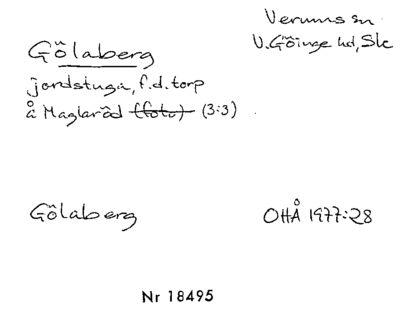 Verums sn
V. Göinge hd, Sk
Gölaberg
jordstuga, f.d. torp
å Maglaröd (foto) (3:3)
Gölaberg
OHÅ 1977:28
Nr 18495